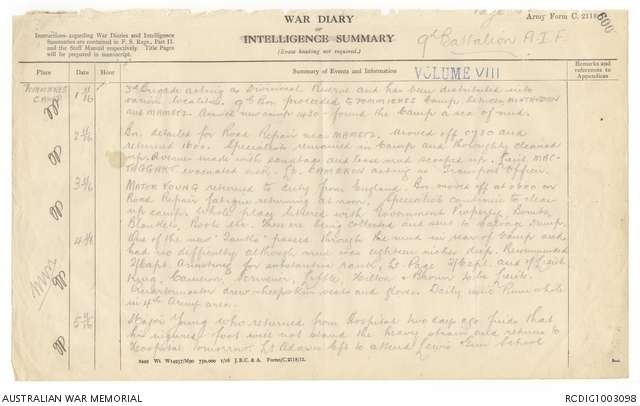 WAR DIARY
OR
INTELLIGENCE SUMMARY
(Erase heading not required.)
Army Form C. 2118
600
Instructions regarding War Diaries and Intelligence
Summaries are contained in F. S. Regs., Part II.
and the Staff Manual respectively. Title Pages
will be prepared in manuscript.
9th Battalion A.I.F.
Place
Date
Hour
Summary of Events and Information
VOLUME VIII
Remarks and
references to
Appendices
POMMIERES
CAMP
1 11/16
3rd Brigade acting as Divisional Reserve and has been distributed into
various localities. 9th Bn proceeded to POMMIERES Camp, between MONTAUBAN
and MAMETZ. Arrived new camp 1430 - found the Camp a sea of mud.
2 11/16
Bn. detailed for Road Repair near MAMETZ. Moved off 0730 and
returned 1600. Specialists remained in Camp and thoroughly cleaned
up. Avenues made with sandbags and loose mud scooped up. Lieut MAC-
TAGGART evacuated sick. Lt. CAMERON acting as Transport Officer.
3 11/16
MAJOR YOUNG returned to duty from England. Bn moved off at 0800 on
Road Repair fatigue returning at noon. Specialists continue to clear
up camp. Whole place littered with Government Property, Bombs,
Blankets, Boots etc. These are being collected and sent to Salvage Dump.
4 11/16
One of the new "Tanks" passed through the mud in rear of Camp and
had no difficulty although mud was eighteen inches deep. Recommended
T/Capt. Armstrong for substantive rank, Lt Page T/Capt and 2/Lieuts
King, Cameron, Scrivener, Lyttle, Hilton & Brown to be Lieut.
Quartermaster drew sheepskin vests and gloves. Daily Rum whole
in 4th Army area.
5 11/16
Major Young who returned from Hospital two days ago finds that
his injured foot will not stand the heavy strain and returns to
Hospital tomorrow. Lt Adams left to attend Lewis Gun School
2449 Wt. W14957/M90 750,000 1/16 J.B.C. & A. Forms/C.2118/12.
AUSTRALIAN WAR MEMORIAL
RCDIG1003098